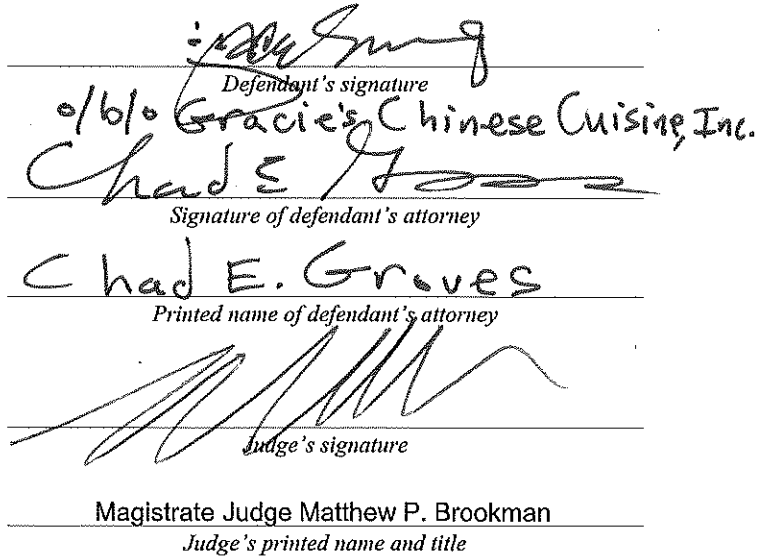 Defendant's signature
o/b/o Gracie's Chinese Cuisine, Inc.
Chad E
Signature of defendant's attorney
Chad E. Groves
Printed name of defendant's attorney
Judge's signature
Magistrate Judge Matthew P. Brookman
Judge's printed name and title